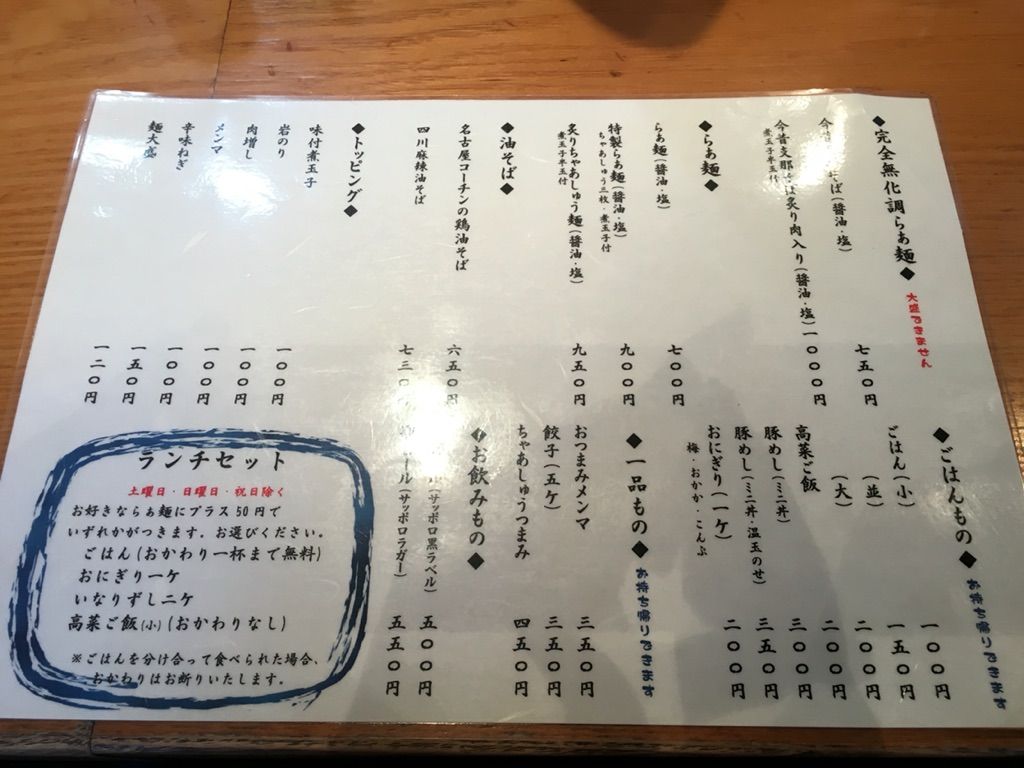 ◆完全無化調らぁ麺◆ 大盛できません
そば(醤油・塩) 七五〇円
今昔支那そば炙り肉入り(醤油・塩) 一〇〇〇円
煮玉子半玉付
◆らぁ麺◆
らぁ麺(醤油・塩) 七〇〇円
特製らぁ麺(醤油・塩) 九〇〇円
ちゃあしゅう三枚・煮玉子付
炙りちゃあしゅう麺(醤油・塩) 九五〇円
煮玉子半玉付
◆油そば◆
名古屋コーチンの鶏油そば 六五〇円
四川麻辣油そば 七三〇円
◆トッピング◆
味付煮玉子 一〇〇円
岩のり 一〇〇円
肉増し 一〇〇円
メンマ 一〇〇円
辛味ねぎ 一五〇円
麺大盛 一二〇円
◆ごはんもの◆ お持ち帰りできます
ごはん(小) 一〇〇円
(並) 一五〇円
(大) 二〇〇円
高菜ご飯 二〇〇円
豚めし(ミニ丼) 三〇〇円
豚めし(ミニ丼・温玉のせ) 三五〇円
おにぎり(一ケ) 二〇〇円
梅・おかか・こんぶ
◆一品もの◆ お持ち帰りできます
おつまみメンマ 三五〇円
餃子(五ケ) 三五〇円
ちゃあしゅうつまみ 四五〇円
◆お飲みもの◆
(サッポロ黒ラベル) 五〇〇円
ビール(サッポロラガー) 五五〇円
ランチセット
土曜日・日曜日・祝日除く
お好きならぁ麺にプラス50円で
いずれかがつきます。お選びください。
ごはん(おかわり一杯まで無料)
おにぎり一ケ
いなりずし二ケ
高菜ご飯(小)(おかわりなし)
※ごはんを分け合って食べられた場合、
おかわりはお断りいたします。